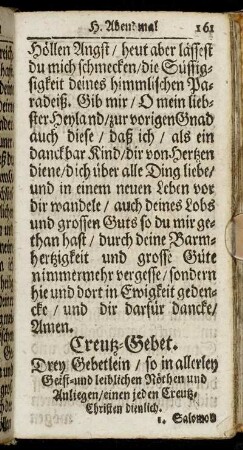 H. Abendmal 161
Höllen Angst / heut aber lässest
du mich schmecken / die Süssig-
sigkeit deines himmlischen Pa-
radeiß. Gib mir / O mein lieb-
ster Heyland / zur vorigen Gnad
auch diese / daß ich / als ein
danckbar Kind / dir von Hertzen
diene / dich über alle Ding liebe /
und in einem neuen Leben vor
dir wandele / auch deines Lobs
und grossen Guts so du mir ge-
than hast / durch deine Barm-
hertzigkeit und grosse Güte
nimmermehr vergesse / sondern
hie und dort in Ewigkeit geden-
cke / und dir darfür dancke /
Amen.
Creutz-Gebet.
Drey Gebetlein / so in allerley
Geist- und leiblichen Nöthen und
Anliegen / einen jeden Creutz-
Christen dienlich.
1. Salomon